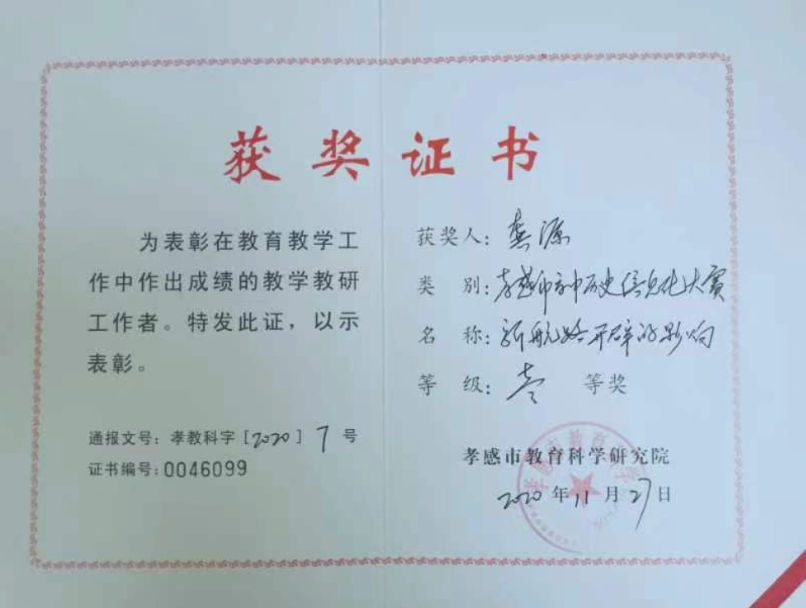 获奖证书
为表彰在教育教学工
作中作出成绩的教学教研
工作者。特发此证，以示
表彰。
通报文号：孝教科字［2020］7号
证书编号：0046099
获奖人：龚源
类 别：孝感市高中历史信息化大赛
名 称：新航路开辟的影响
等 级：壹 等奖
孝感市教育科学研究院
2020年11月27日